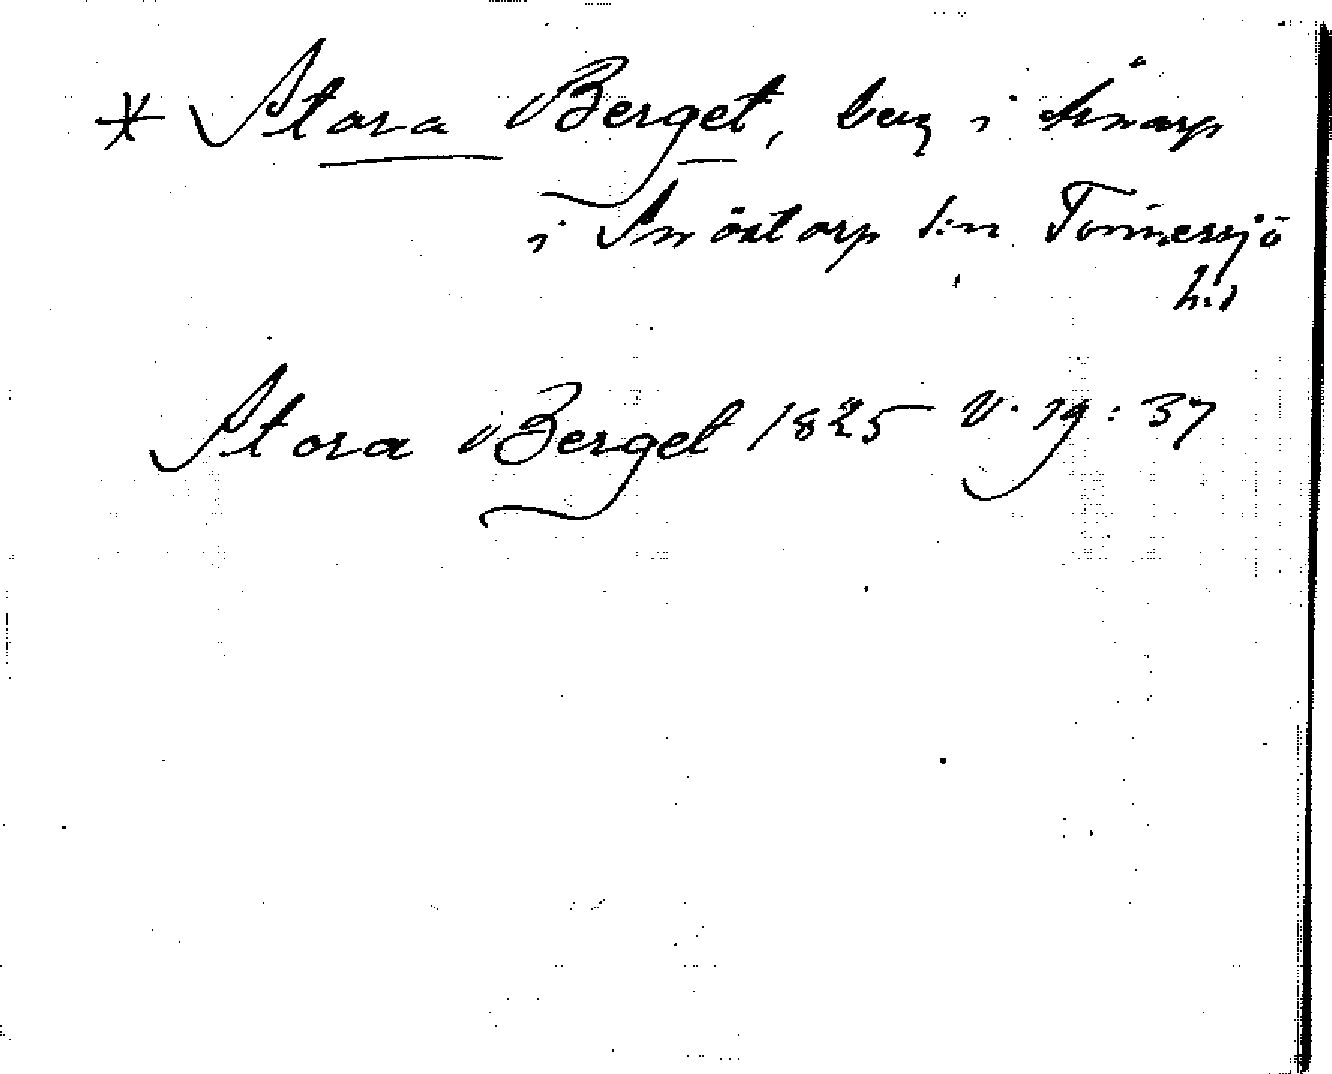 * Stora Berget, berg i
i Snöstorp s:n Tönnersjö
h:d
Stora Berget 1825 V. 19: 37